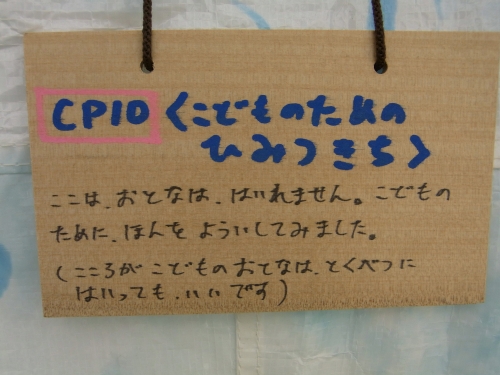 CPIO〈こどものための
ひみつきち〉
ここは、おとなは、はいれません。こどもの
ために、ほんを よういしてみました。
(こころが こどもの おとなは、とくべつに
はいっても、いいです)